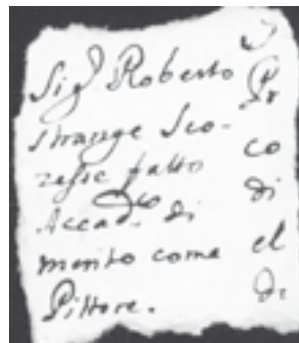 Sig.r Roberto
Strange Sco-
zesse fatto
Accad.co di
merito come
Pittore.
co
di
el
di